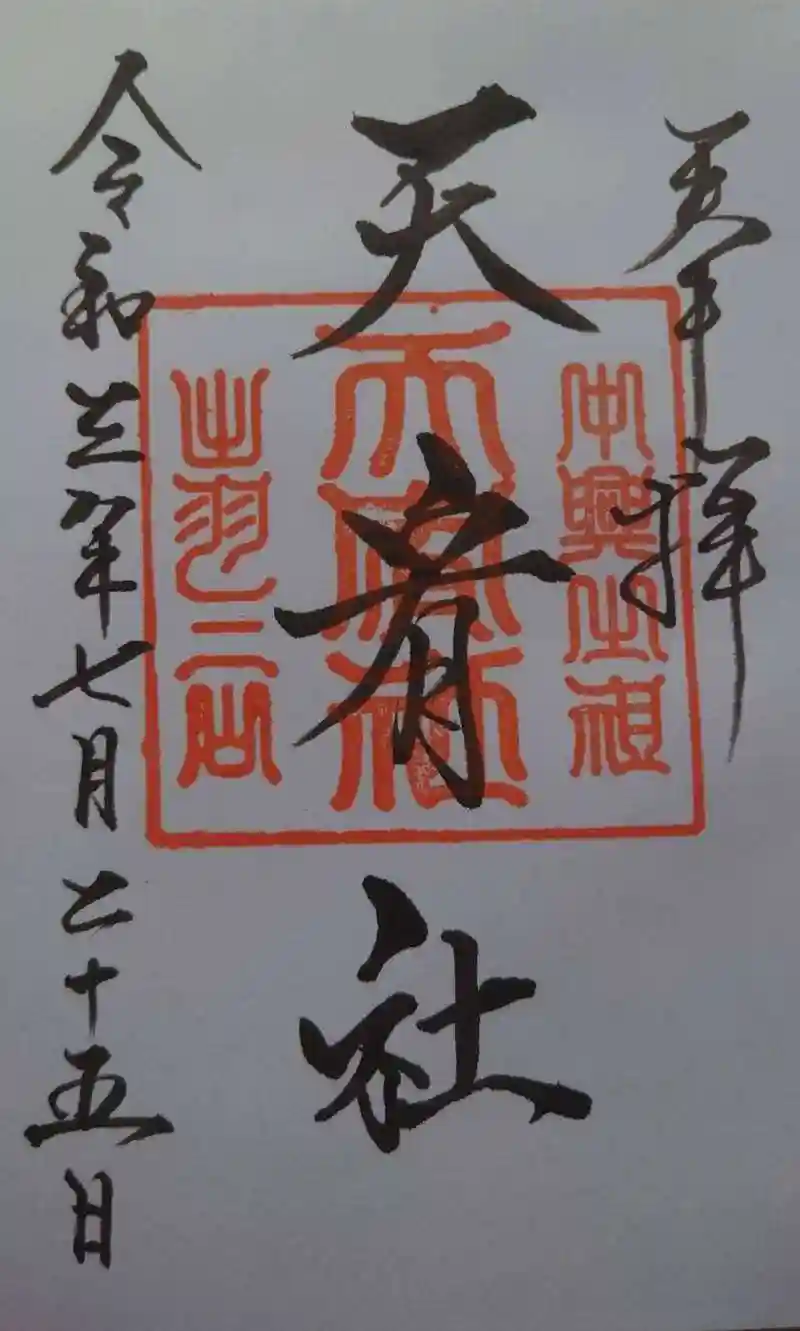 奉拝
天宥社
令和三年七月二十五日
中興之祖
天宥社
出羽三山